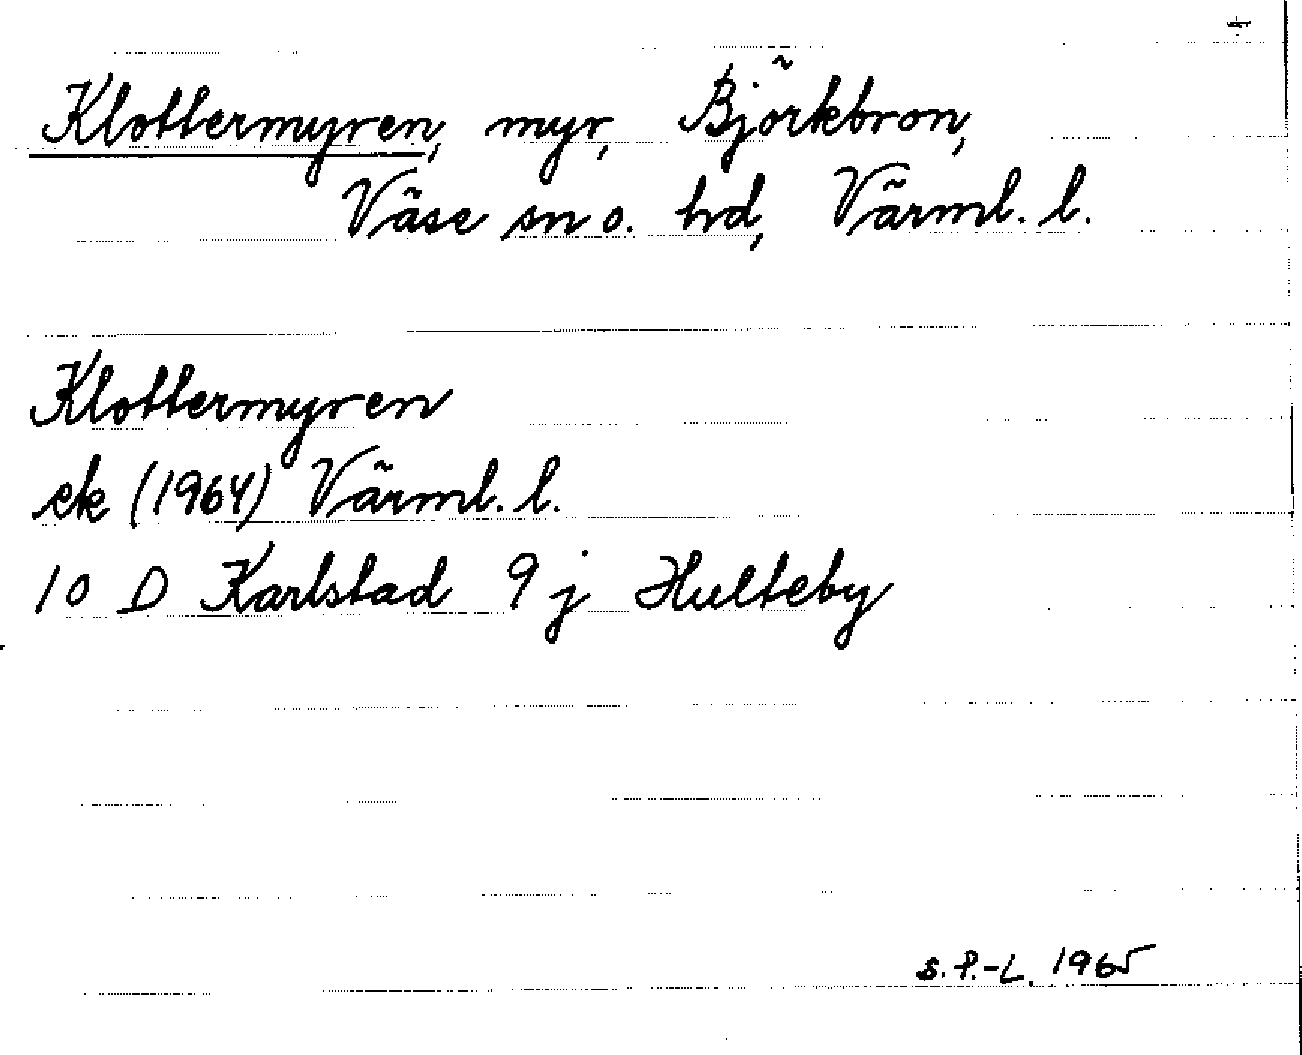 Klottermyren, myr, Björkbron,
Väse sn o. hd, Värml. l.
Klottermyren
ek (1964) Värml. l.
10 D Karlstad 9 j Hulteby
S. P.-L. 1965